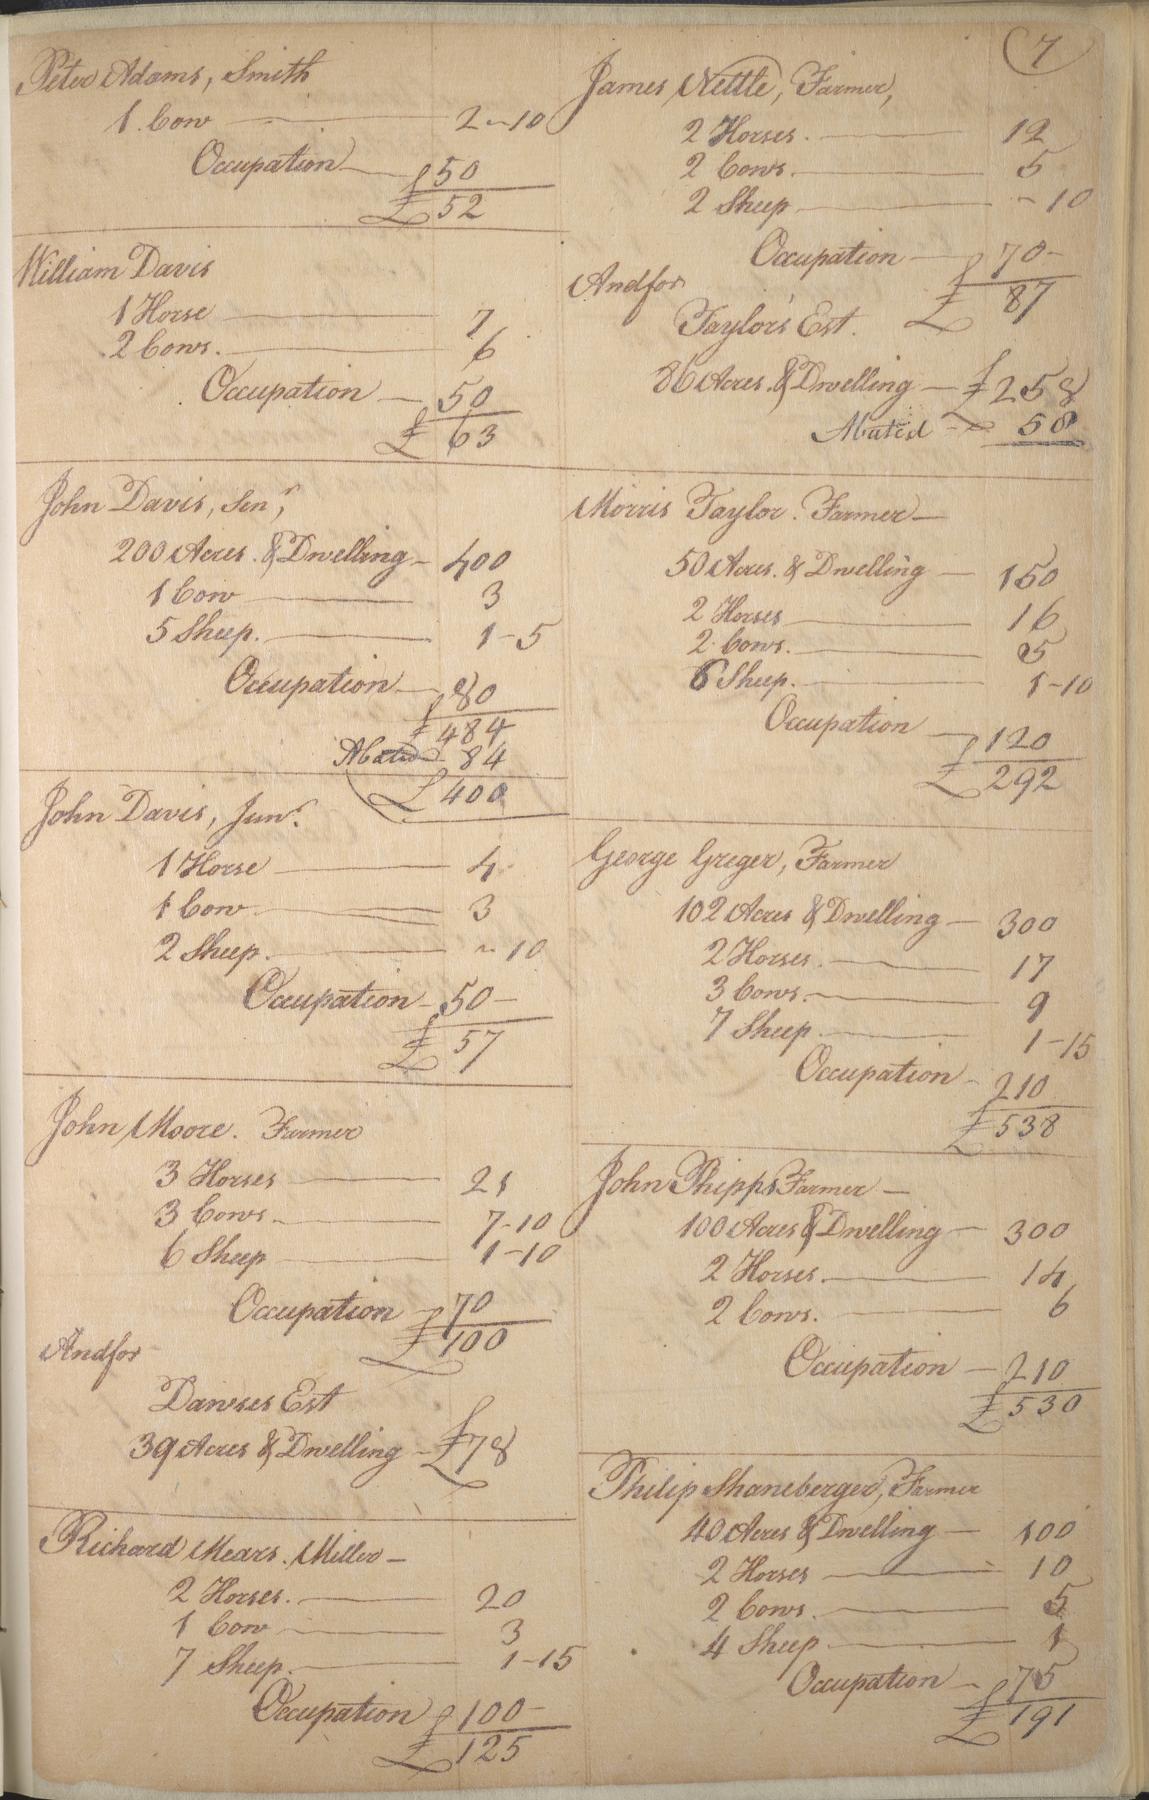 7
Peter Adams, Smith
1 Cow 2 - 10
Occupation 50
£ 52
William Davis
1 Horse 7
2 Cows. 6
Occupation 50
£ 63
John Davis, Senr,
200 Acres. & Dwelling 400
1 Cow 3
5 Sheep. 1-5
Occupation 80
£ 484
Abated 84
£ 400
John Davis, Junr.
1 Horse 4
1 Cow 3
2 Sheep. ~ 10
Occupation 50
£ 57
John Moore. Farmer
3 Horses 21
3 Cows. 7-10
6 Sheep 1-10
Occupation 70
£ 100
And for
Dawses Est
39 Acres & Dwelling £78
Richard Mears. Miller
2 Horses. 20
1 Cow 3
7 Sheep. 1-15
Occupation 100
£ 125
James Nettle, Farmer,
2 Horses. 12
2 Cows. 5
2 Sheep ~ 10
Occupation 70
£ 87
And for
Taylor's Est.
86 Acres. & Dwelling £258
Abated 58
Morris Taylor. Farmer
50 Acres. & Dwelling 150
2 Horses 16
2 Cows. 5
6 Sheep. 1-10
Occupation 120
£ 292
George Greger, Farmer
102 Acres & Dwelling 300
2 Horses. 17
3 Cows. 9
7 Sheep 1-15
Occupation 210
£ 538
John Phipps Farmer
100 Acres & Dwelling 300
2 Horses. 14
2 Cows. 6
Occupation 210
£ 530
Philip Shaneberger, Farmer
40 Acres & Dwelling 100
2 Horses 10
2 Cows. 5
4 Sheep 1
Occupation 75
£ 191